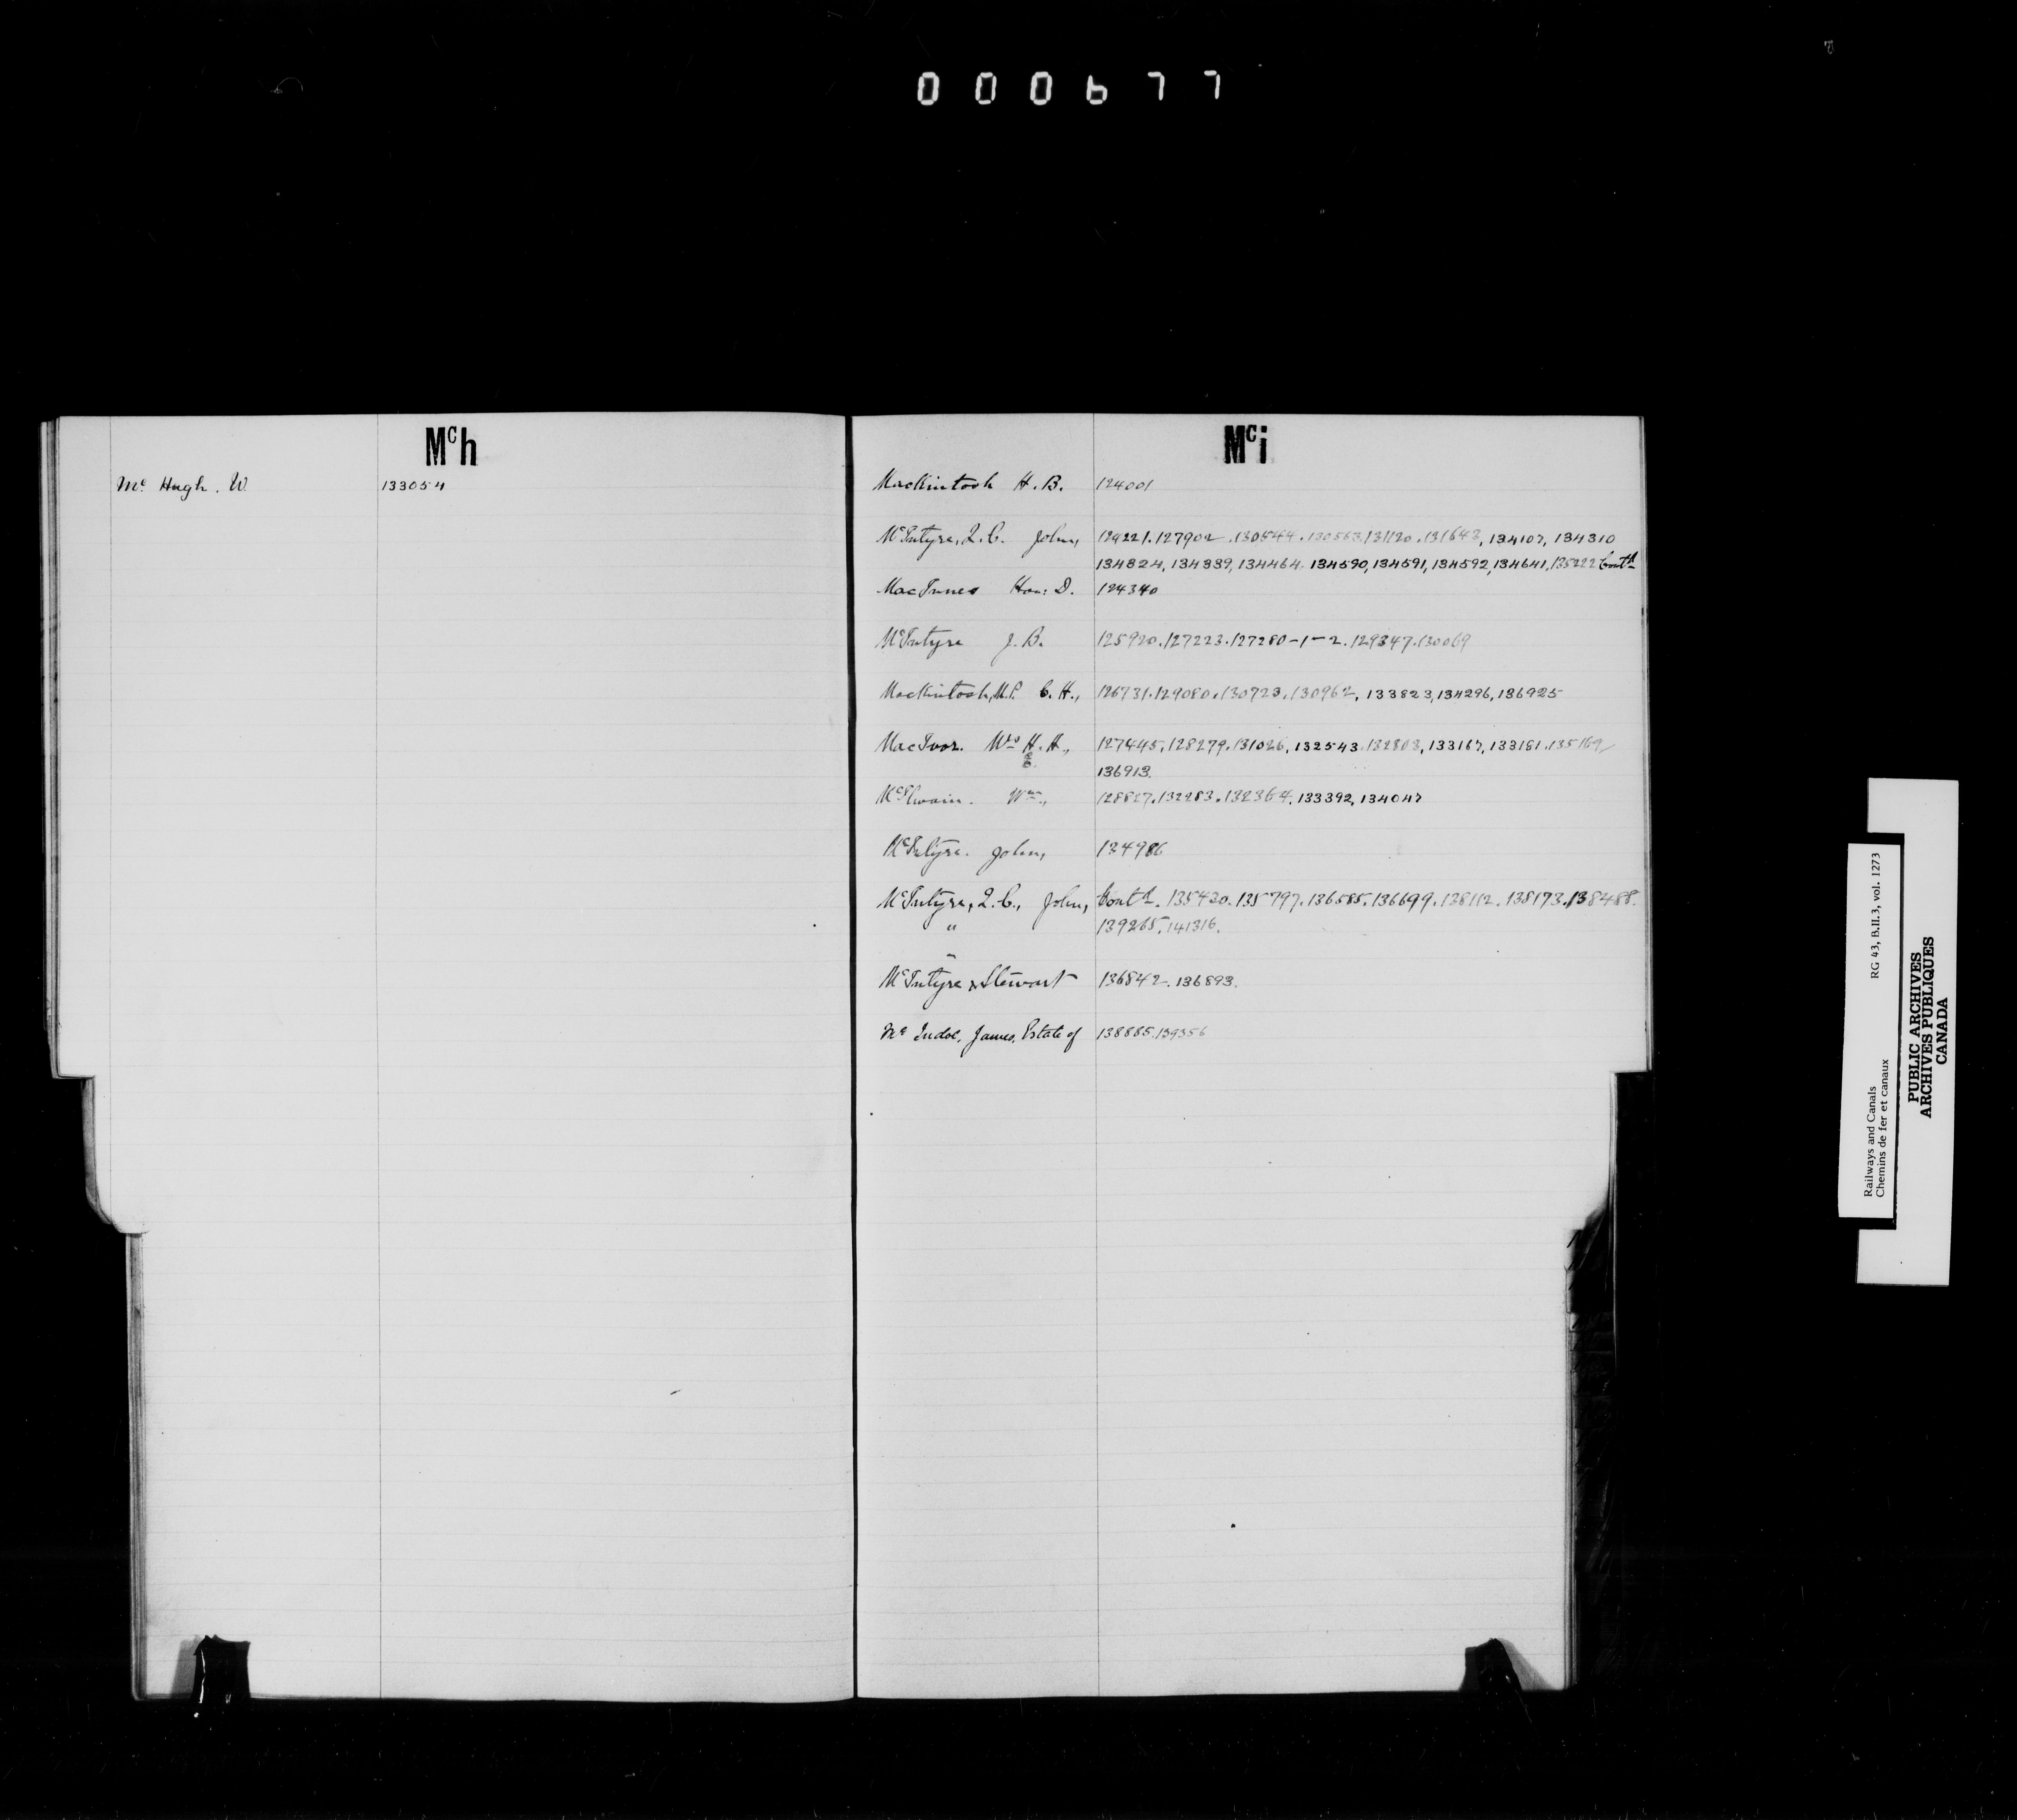 000677
Mch
Mc Hugh. W. 133054
Mci
MacKintosh H. B. 124001
McIntyre, Q.C. John, 124221.127902.130544.130563.131120.131643, 134107, 134310
134824, 134339, 134464. 134590, 134591, 134592, 134641, 135222 Contd
MacInnes Hon: D. 124340
McIntyre J. B. 125920.127223.127280-1-2.129347.130069
MacKintosh, M.P. C. H., 126731.129080.130723.130962, 133823, 134296, 136925
MacIvor. Mrs H. H., 127445.128279.131026, 132543.132803, 133167, 133181.135169
136913.
McIlwain. Wm., 128827.132283.132364, 133392, 134047
McIntyre. John, 134986
McIntyre, Q.C., John, Contd. 135420.135797.136585.136699.138112.138173.138488.
" 139265.141316.
McIntyre & Stewart 136842.136893.
Mc Indoe, James, Estate of 138885.139356
Railways and Canals RG 43, B.II.3, vol. 1273
Chemins de fer et canaux
PUBLIC ARCHIVES
ARCHIVES PUBLIQUES
CANADA